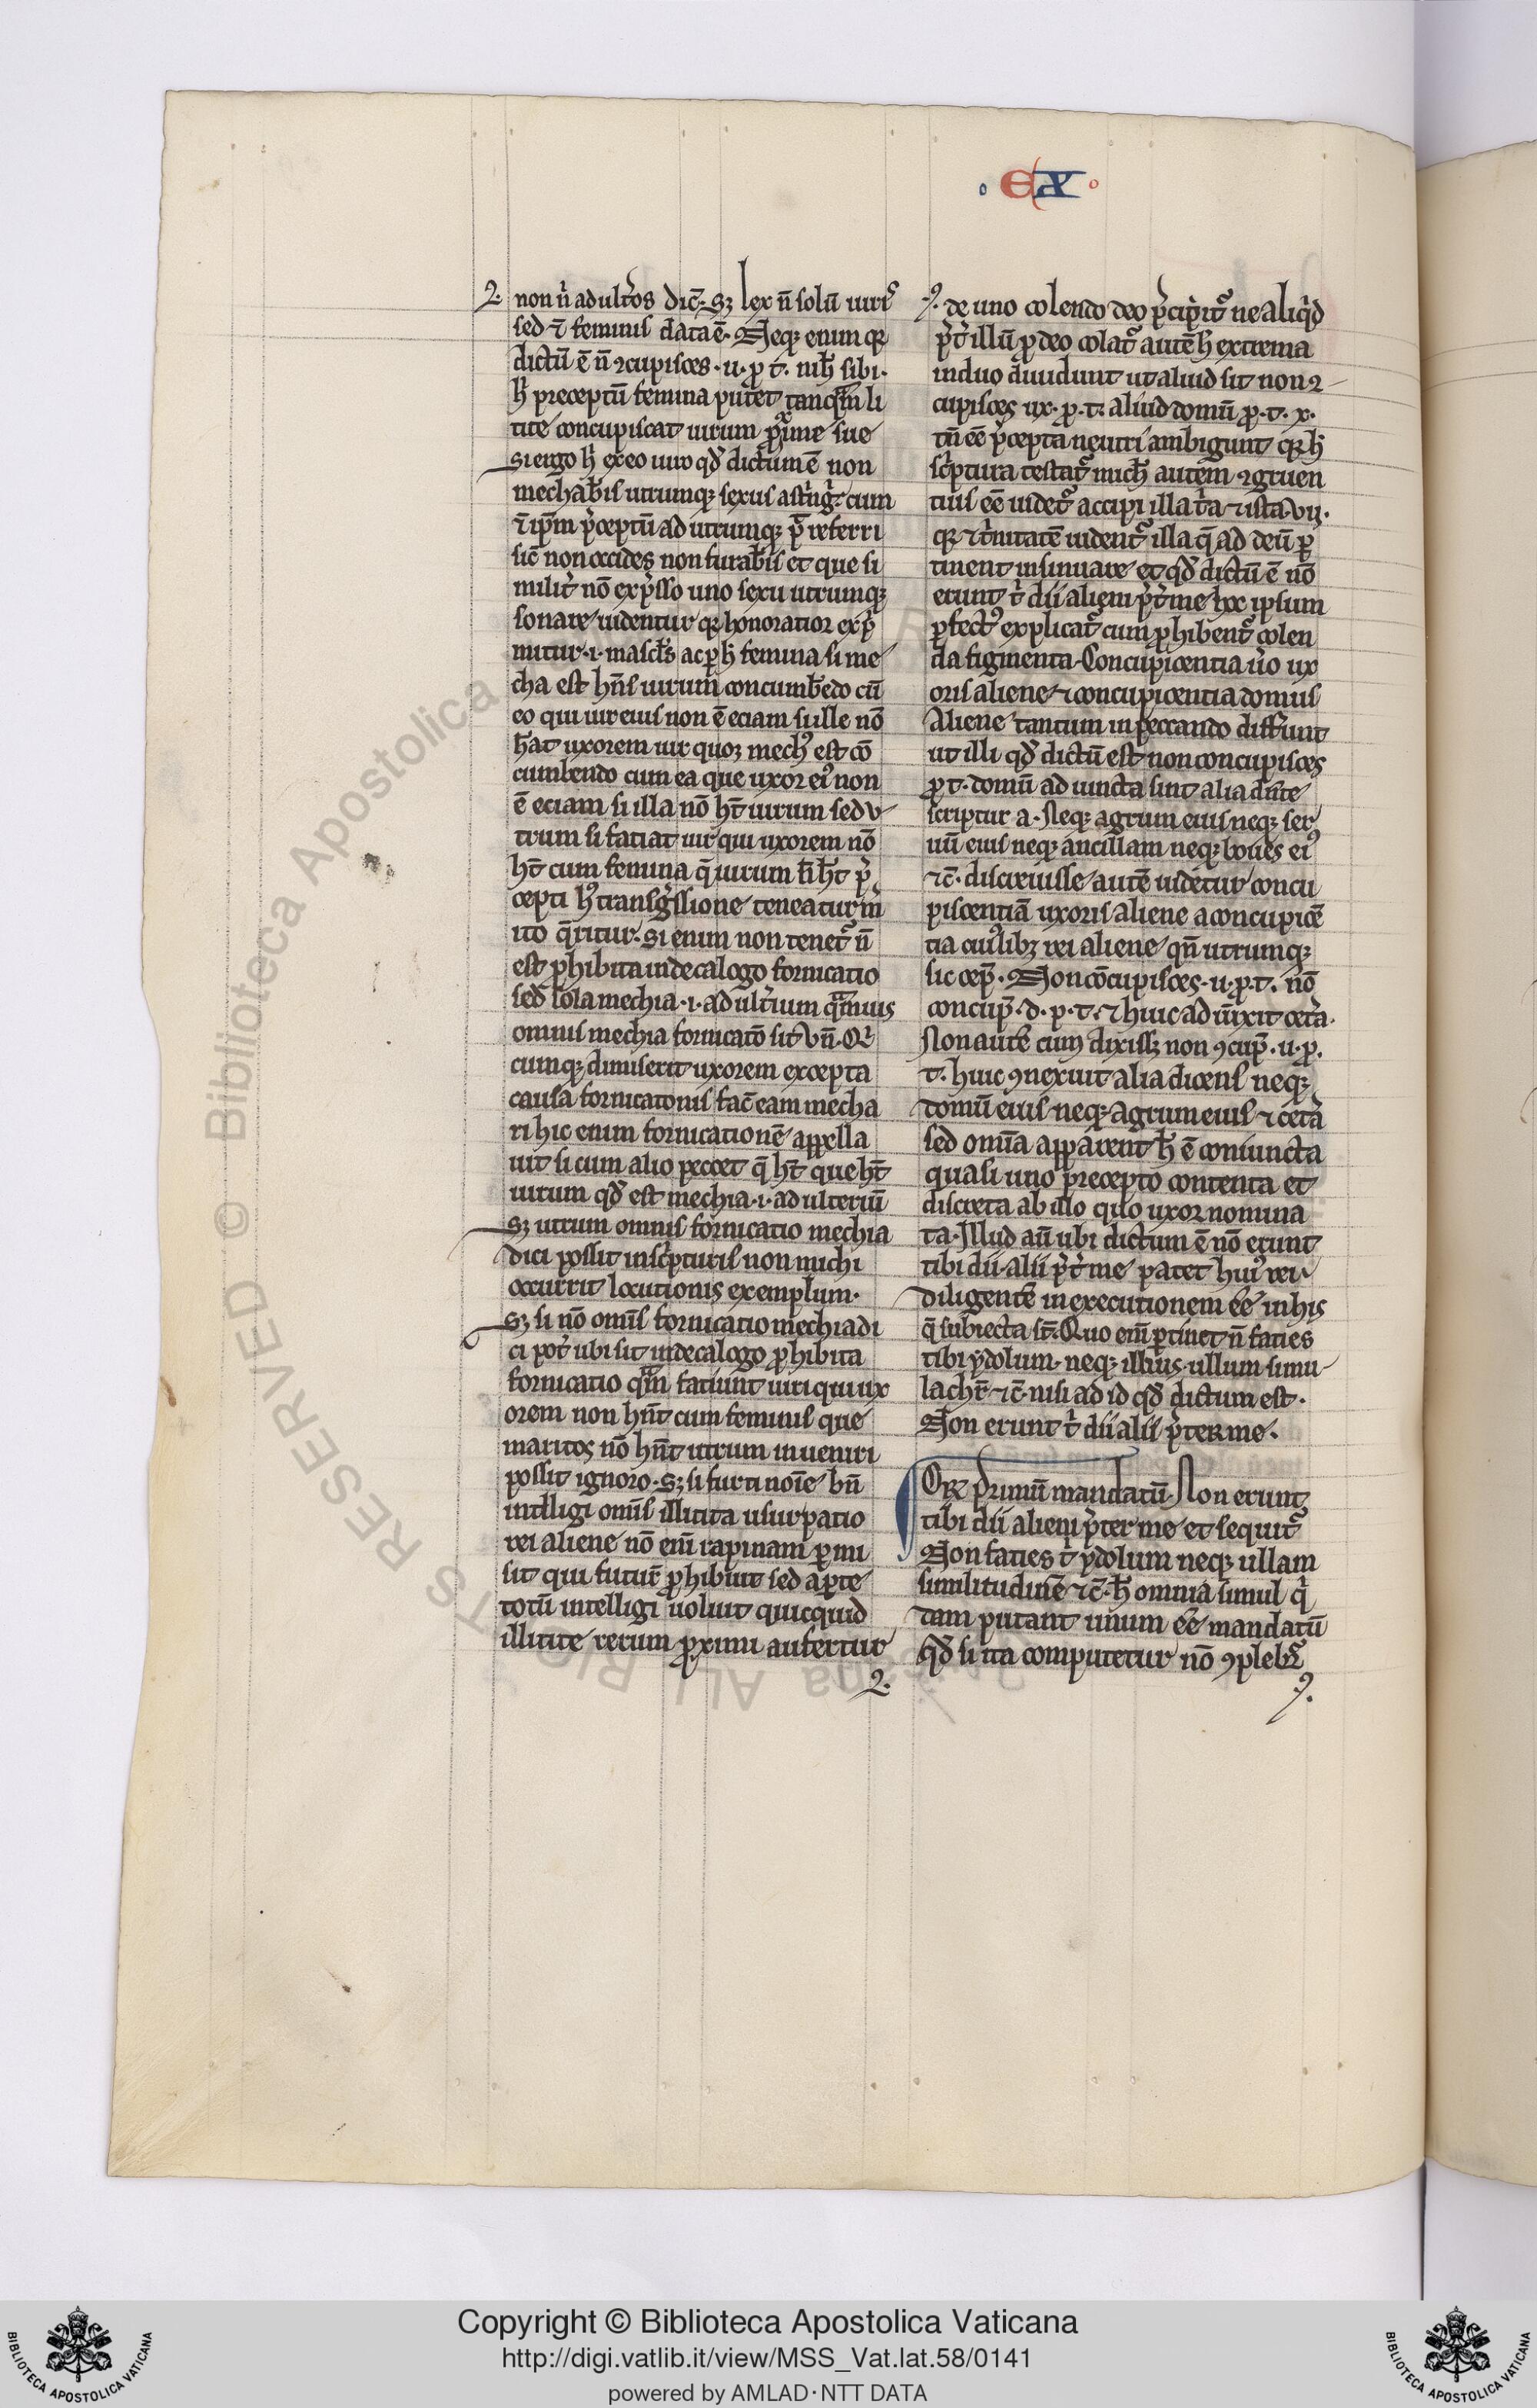 EX
2. non ũ adult̾os dic̄. Sꝫ lex ñ solũ uirꝭ
sed ⁊̄ feminis data ē. Neqꝫ enim qꝛ
dictũ ē ñ ꝯcupisces. u. ꝓ t̾. nih̄ sibi.
h̾ preceptũ femina putet tanqᵃm li
cite concupiscat uirum ꝓxime sue
Si ergo h̾ ex eo uiro qd̾ dictum ē non
mechab̾is utrumqꝫ sexus astⁱngⁱt̾. cum
⁊̄ ip̄m p̾ceptũ ad utrumqꝫ p̄t referri
sic̄ non occides non furab̾is et que si
milit̾ nō exp̾sso uno sexu utrumqꝫ
sonare uidentur qꝛ honoratior exp̾
mitur .i. mascl̾s ac ꝑ h̾ femina si me
cha est hñs uirum concumb̾edo cũ
eo qui uir eius non ē eciam si ille nō
h̾at uxorem uir quoꝫ mech᾿ est cō
cumbendo cum ea que uxor ei᾿ non
ē eciam si illa nō ht̄ uirum sed v
trum si faciat uir qui uxorem nō
ht̄ cum femina q̄ uirum ñ h̾t p̾
cepti h᾿ transg̾ssione teneatur m̾
ito q̄ritur. Si enim non tenet᷑ ñ
est ꝓhibita in decalogo fornicatio
sed sola mechia .i. adult̾ium qᵃmuis
omnis mechia fornicatō sit Vñ. Qⁱ
cumqꝫ dimiserit uxorem excepta
causa fornicatonis fac̄ eam mecha
ri hic enim fornicationē appella
uit si cum alio peccet q̄ ht̄ que ht̄
uirum qd̾ est mechia .i. adulteriũ
Sꝫ utrum omnis fornicatio mechia
dici possit in scⁱpturis non michi
occurrit locutionis exemplum.
Sꝫ si nō omīs fornicatio mechia di
ci pot̾ ubi sit in decalogo ꝓhibita
fornicatio qᵃm faciunt uiri qui ux
orem non hñt cum feminis que
maritos nō hñt utrum inueniri
possit ignoro. Sꝫ si furti noīe bñ
intelligi omīs illicita usurpatio
rei aliene nō em̄ rapinam ꝑmi
sit qui furtũ ꝓhibuit sed a ꝑte
totũ intelligi uoluit quicquid
illicite rerum ꝓximi aufertur
2.
9. de uno colendo deo p̾cipit᷑ ne aliqⁱd
p̾t̾ illũ ꝓ deo colat᷑ autē h̾ extrema
in duo diuidunt ut aliud sit non ꝯ
cupisces ux. ꝓ. t. aliud domũ ꝓ. t. x.
tñ eē p̾cepta neutri ambigunt qꝛ h̾
scⁱptura testat᷑ mich̾ autem ꝯgruen
tius eē uidet᷑ accipi illa t̾a ⁊ ista vij.
qꝛ ⁊ tⁱnitatē uident᷑ illa q̄ ad deũ ꝑ
tinent insinuare et qd̾ dictũ ē nō
erunt t̾ dii alieni p̾t̾ me hoc ipsum
ꝑfect᾿ explicat᷑ cum ꝓhibent᷑ colen
da figmenta. Concupicentia ũo ux
oris aliene ⁊ concupicentia domus
Aliene tantum in peccando differunt
ut illi qd̾ dictũ est non concupisces
ꝓ t. domũ adiuncta sint alia dñte
scriptur a. Neqꝫ agrum eius neqꝫ ser
uũ eius neqꝫ ancillam neqꝫ boues ei᾿
⁊c̄. discreuisse autē uidetur concu
piscentiā uxoris aliene a concupicē
tia cui᾿libꝫ rei aliene qñ utrumqꝫ
sic cep̄. Non cōcupisces. u. ꝓ. t. nō
concup̄. d. ꝓ. t. ⁊ huic adiũxit cet̾a.
Non autē cum dixissꝫ non ꝯcup̄. u. ꝓ.
t. huic ꝯnexuit alia dicens neqꝫ
domũ eius neqꝫ agrum eius ⁊ cet̾a
sed omīa apparent h̾ ē coniuncta
quasi uno precepto contenta et
discreta ab illo quo uxor nomina
ta. Illud aũ ubi dictum ē nō erunt
tibi dii alii p̾t̾ me patet hui᾿ rei
diligentē in executionem eē in his
q̄ subiecta st̄. Quo em̄ ꝑtinet ñ facies
tibi ydolum neqꝫ illius ullum simu
lach̄r ⁊c̄ nisi ad id qd̾ dictum est.
Non erunt t̾ dii alii p̾ter me.
Qꝛe primũ mandatũ. Non erunt
tibi dii alieni p̾ter me et sequit᷑
Non facies t̾ ydolum neqꝫ ullam
similitudinē ⁊c̄. h̾ omnia simul qⁱ
dam putant unum eē mandatũ
Qd̾ si ita computetur nō ꝯplebt᷑
9.
Copyright © Biblioteca Apostolica Vaticana
http://digi.vatlib.it/view/MSS_Vat.lat.58/0141
powered by AMLAD·NTT DATA
BIBLIOTECA APOSTOLICA VATICANA
BIBLIOTECA APOSTOLICA VATICANA